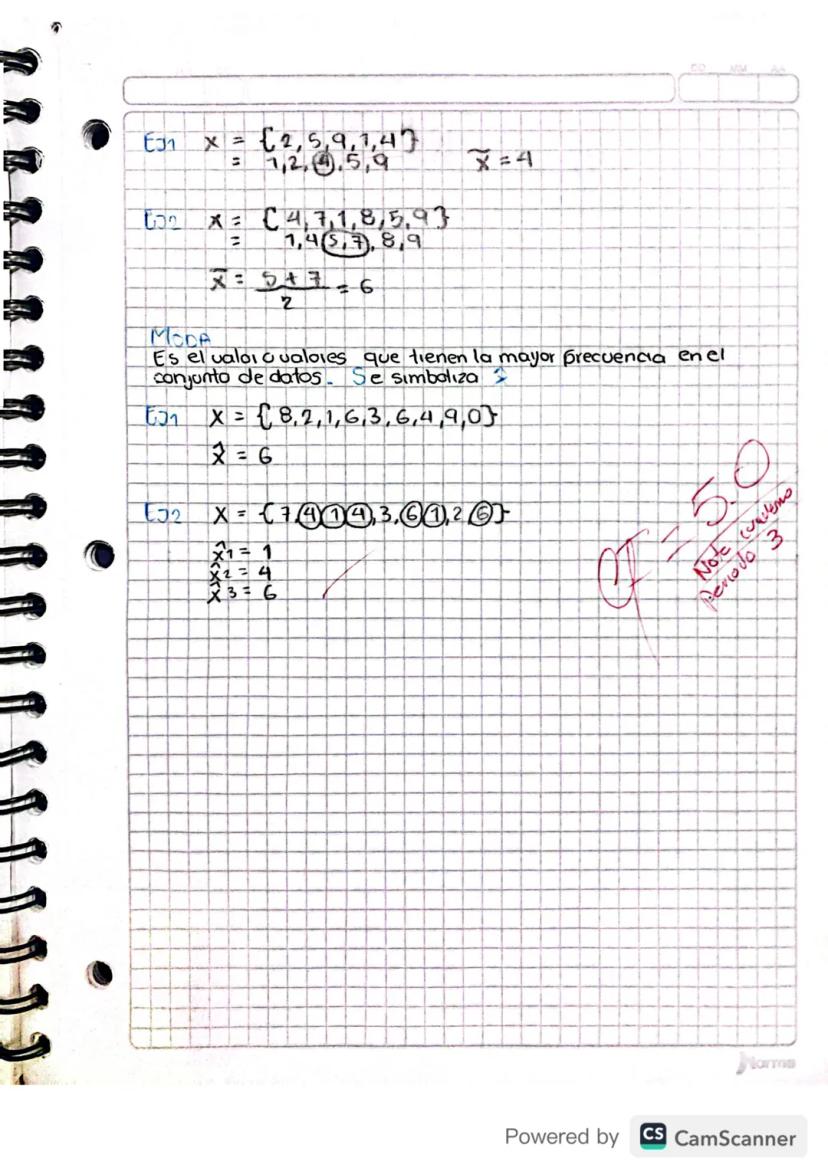 DD MM AA
EJ1 X = {2,5,9,1,4}
= 1,2,4,5,9 x̃ = 4
EJ2 X = {4,7,1,8,5,9}
= 1,4,5,7,8,9
x̅ = 5 + 7 / 2 = 6
MODA
Es el valor o valores que tienen la mayor frecuencia en el
conjunto de datos. Se simboliza x̂
EJ1 X = {8,2,1,6,3,6,4,9,0}
x̂ = 6
EJ2 X = {7,4,1,4,3,6,1,2,6}
x̂1 = 1
x̂2 = 4
x̂3 = 6
= 5.0
Nota cuaderno
Periodo 3
Norma
Powered by CS CamScanner